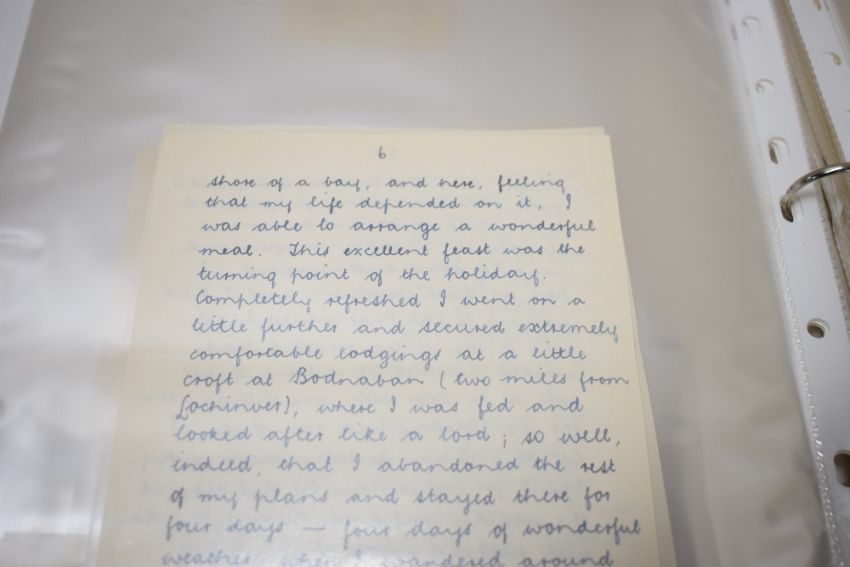 6
shore of a bay, and here, feeling
that my life depended on it, I
was able to arrange a wonderful
meal. This excellent feast was the
turning point of the holiday.
Completely refreshed I went on a
little further and secured extremely
comfortable lodgings at a little
croft at Bodnaban (two miles from
Lochinver), where I was fed and
looked after like a lord; so well,
indeed, that I abandoned the rest
of my plans and stayed there for
four days — four days of wonderful
weather, where I wandered around